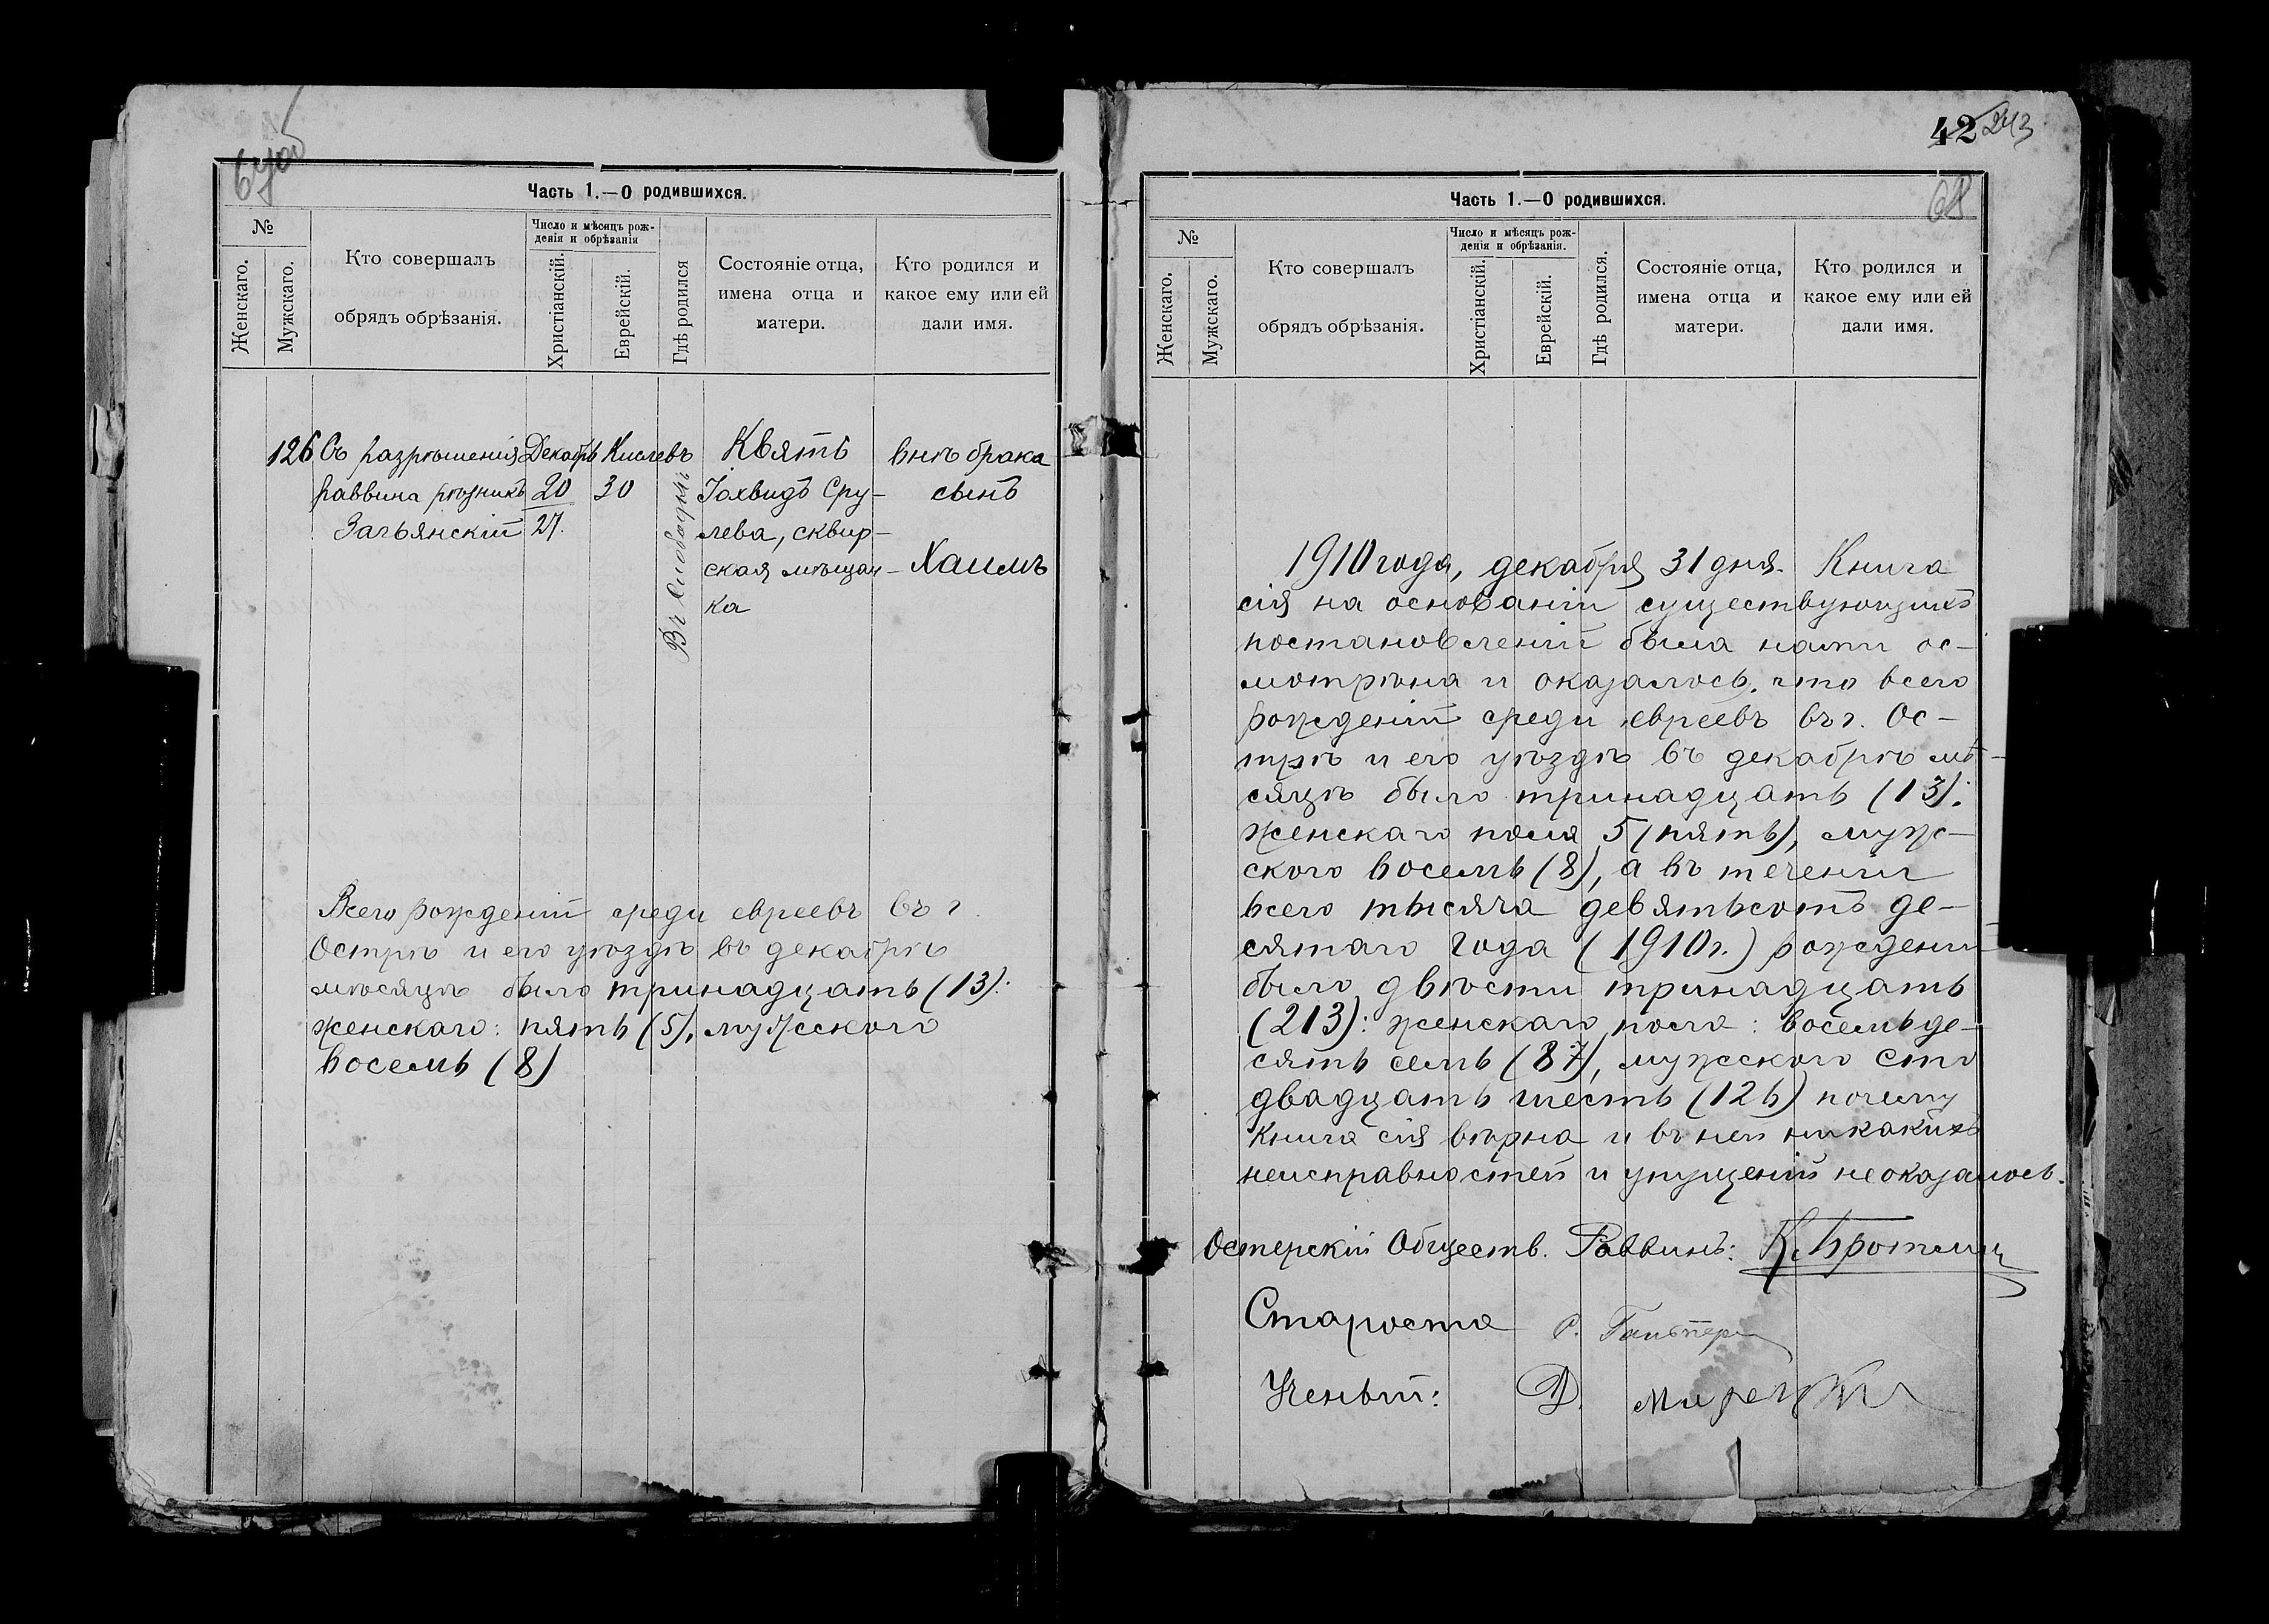 Часть 1.—О родившихся.
№
Женскаго.
Мужскаго.
Кто совершалъ
обрядъ обрѣзанія.
Число и мѣсяцъ рож-
денія и обрѣзанія
Христіанскій.
Еврейскій.
Гдѣ родился
Состояніе отца,
имена отца и
матери.
Кто родился и
какое ему или ей
дали имя.
126
Съ разрѣшенія
раввина рѣзникъ
Декабрь
20
27.
Кислевъ
30
Въ Слободкѣ
Квятъ
Іохвидъ Сру-
лева, сквир-
ская мѣщан-
ка
внѣ брака
сынъ
Хаимъ
Всего рожденій среди евреевъ въ г.
Острѣ и его уѣздѣ въ декабрѣ
мѣсяцѣ было тринадцать (13):
женскаго: пять (5), мужского
восемь (8)
42
243
68
Часть 1.—О родившихся.
№
Женскаго.
Мужскаго.
Кто совершалъ
обрядъ обрѣзанія.
Число и мѣсяцъ рож-
денія и обрѣзанія.
Христіанскій.
Еврейскій.
Гдѣ родился.
Состояніе отца,
имена отца и
матери.
Кто родился и
какое ему или ей
дали имя.
1910 года, декабря 31 дня. Книга
сія на основаніи существующихъ
постановленій была нами ос-
мотрѣна и оказалось, что всего
рожденій среди евреевъ въ г. Ос-
трѣ и его уѣздѣ въ декабрѣ мѣ-
сяцѣ было тринадцать (13):
женскаго пола 5 (пять), муж-
ского восемь (8), а въ теченіи
всего тысяча девятьсотъ де-
сятаго года (1910 г.) рожденій
было двѣсти тринадцать
(213): женскаго пола: восемьде-
сять семь (87), мужского сто
двадцать шесть (126) почему
книга сія вѣрна и въ ней никакихъ
неисправностей и упущеній не оказалось.
Остерскій Обществ. Раввинъ:
Староста
Ученый: